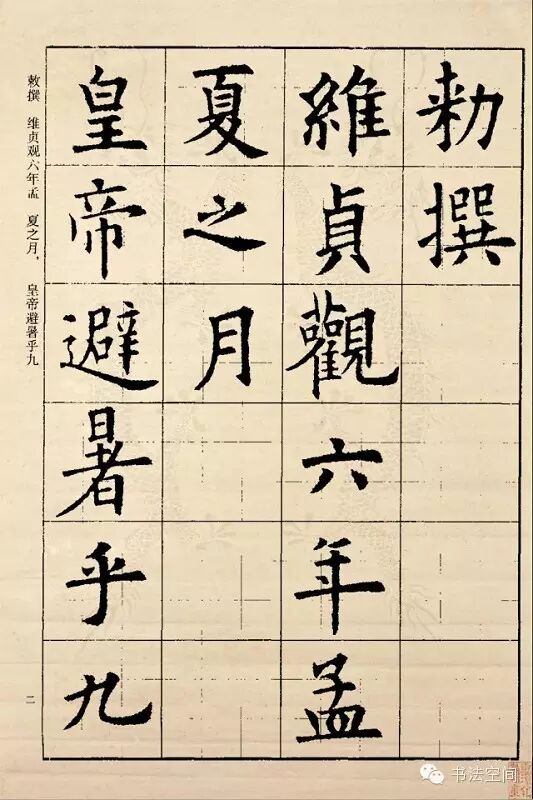 勑撰
維貞觀六年孟
夏之月
皇帝避暑乎九
敕撰 维贞观六年孟 夏之月， 皇帝避暑乎九
二
书法空间